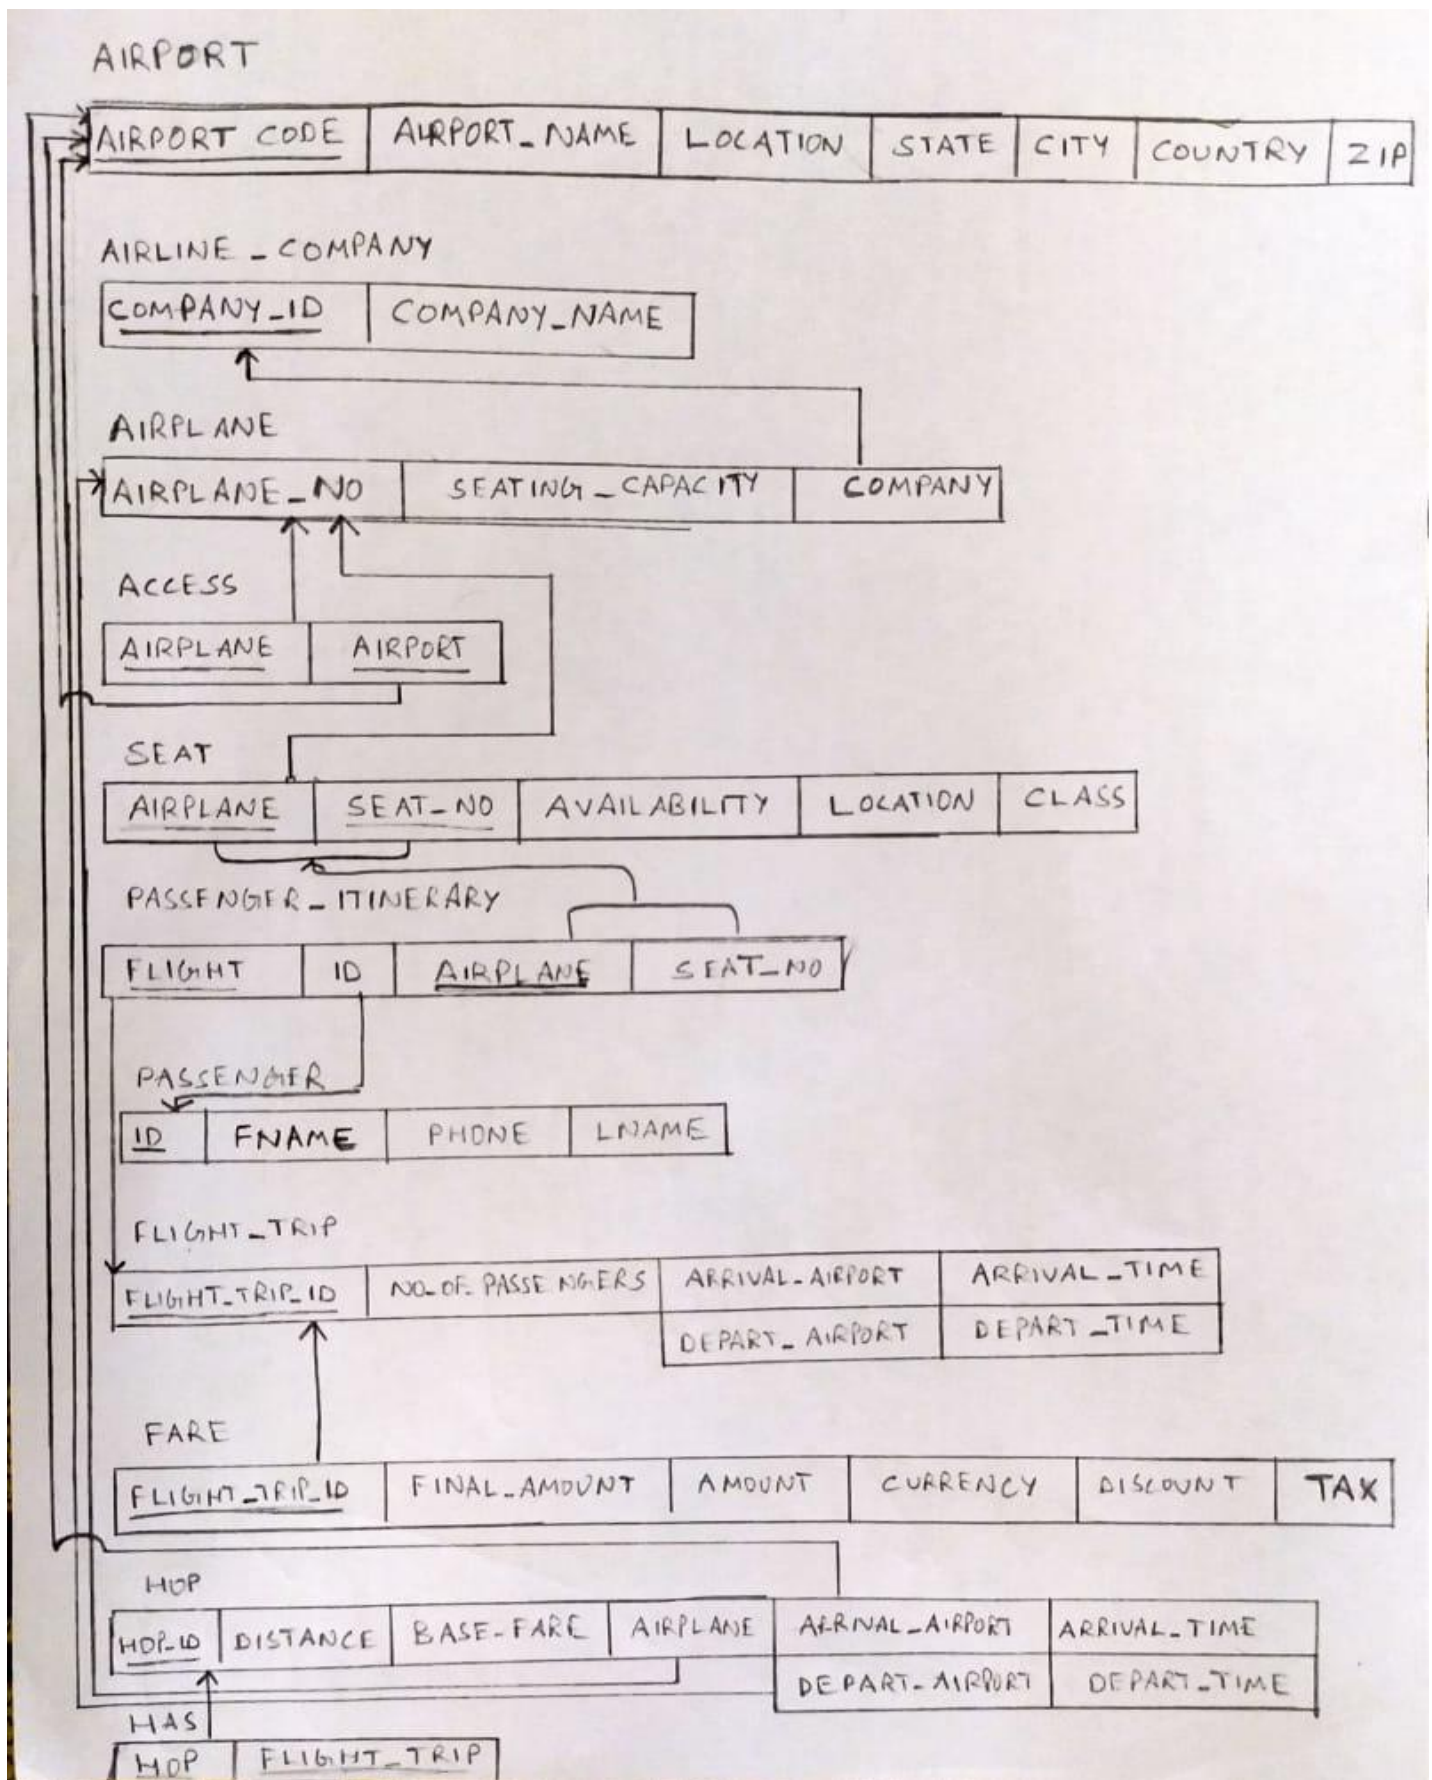 AIRPORT
AIRPORT CODE AIRPORT_NAME LOCATION STATE CITY COUNTRY ZIP
AIRLINE_COMPANY
COMPANY_ID COMPANY_NAME
AIRPLANE
AIRPLANE_NO SEATING_CAPACITY COMPANY
ACCESS
AIRPLANE AIRPORT
SEAT
AIRPLANE SEAT_NO AVAILABILITY LOCATION CLASS
PASSENGER_ITINERARY
FLIGHT ID AIRPLANE SEAT_NO
PASSENGER
ID FNAME PHONE LNAME
FLIGHT_TRIP
FLIGHT_TRIP_ID NO_OF_PASSENGERS ARRIVAL_AIRPORT ARRIVAL_TIME
DEPART_AIRPORT DEPART_TIME
FARE
FLIGHT_TRIP_ID FINAL_AMOUNT AMOUNT CURRENCY DISCOUNT TAX
HOP
HOP_ID DISTANCE BASE_FARE AIRPLANE ARRIVAL_AIRPORT ARRIVAL_TIME
DEPART_AIRPORT DEPART_TIME
HAS
HOP FLIGHT_TRIP